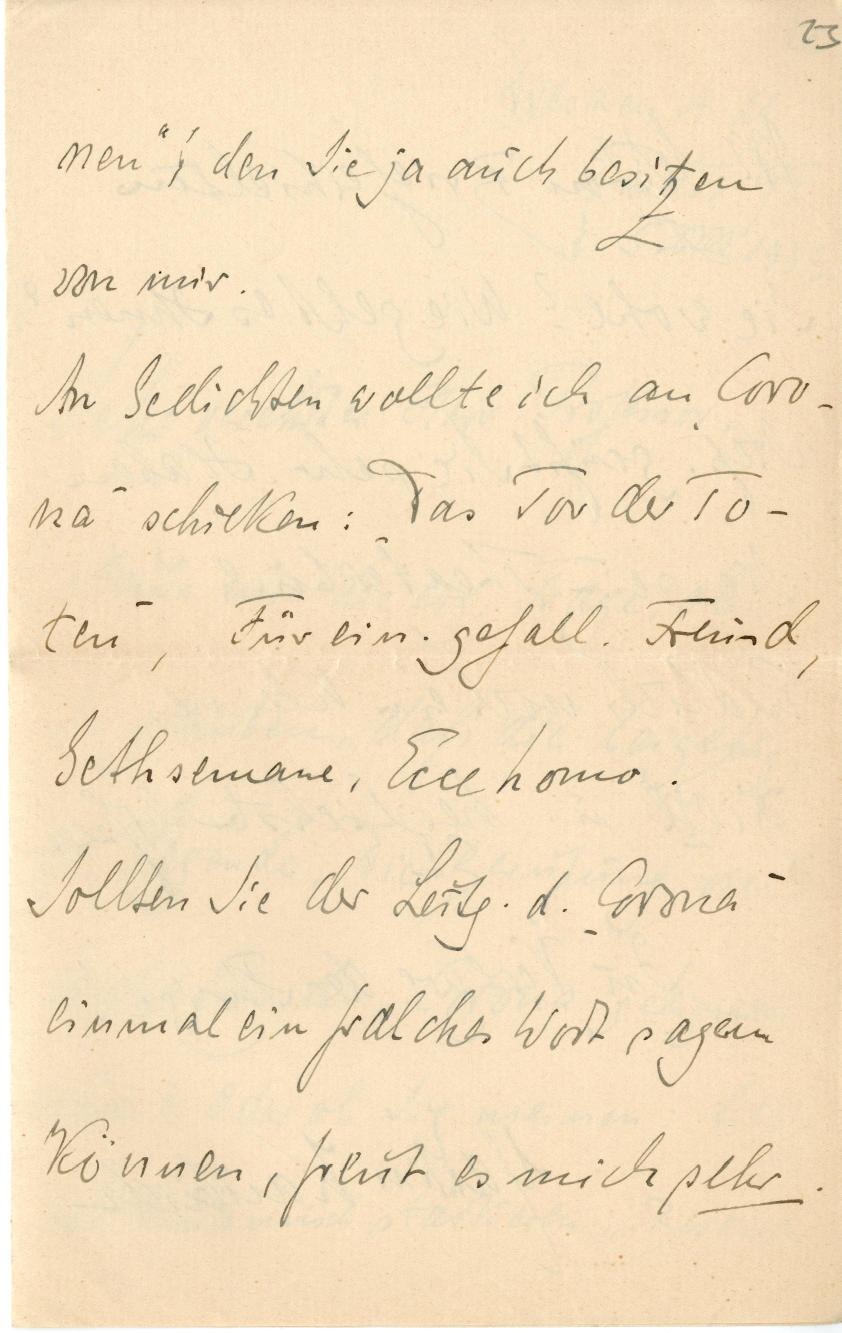 23
nen"! den Sie ja auch besitzen
von mir.
An Gedichten wollte ich an „Coro-
na" schicken: „Das Tor der To-
ten", Für ein. gefall. Freund,
Gethsemane, Ecce homo.
Sollten Sie der Leitg. d. „Corona"
einmal ein solches Wort sagen
können, freut es mich sehr.